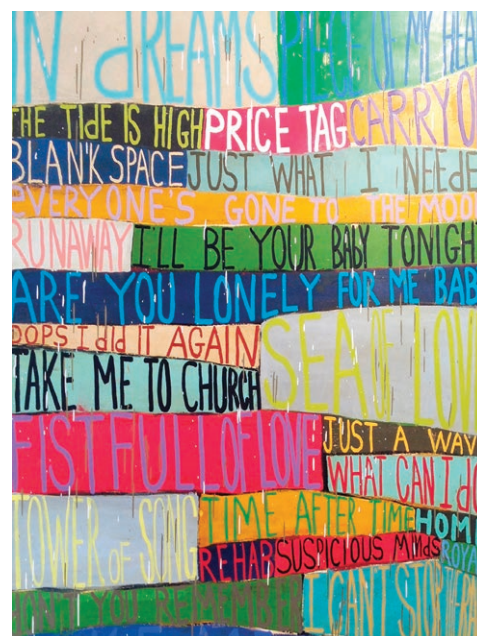 IN dREAMS PIECE OF MY HEAR
THE TIdE IS HIGH PRICE TAG CARRY O
BLANK SPACE JUST WHAT I NEEdE
EVERYONE'S GONE TO THE MOO
RUNAWAY I'LL BE YOUR BABY TONIGH
ARE YOU LONELY FOR ME BAB
OOPS I did IT AGAIN
SEA OF LOV
TAKE ME TO CHURCH
FISTFULL OF LOVE JUST A WAV
WHAT CAN I dO
TOWER OF SONG TIME AFTER TIME HOM
REHAB SUSPICIOUS MINdS ROYA
DON'T YOU REMEMBER I CAN'T STOP